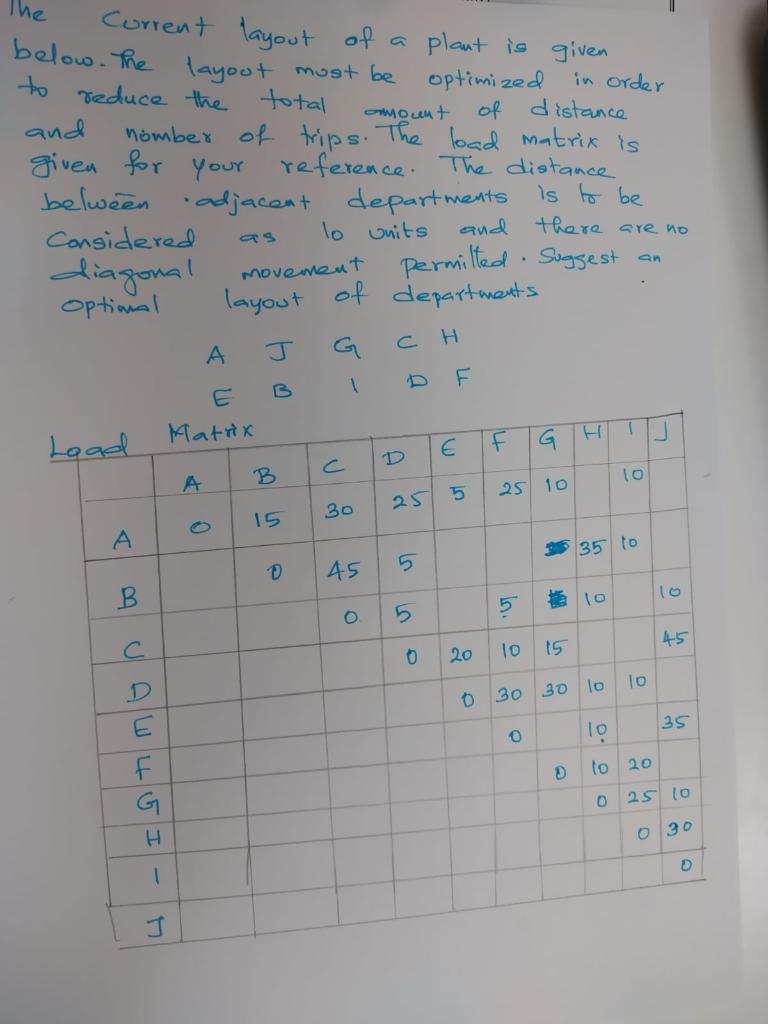 The Current layout of a plant is given
below. The layout must be optimized in order
to reduce the total amount of distance
and nomber of trips. The load matrix is
given for your reference. The distance
between adjacent departments is to be
Considered as 10 units and there are no
diagonal movement permitted. Suggest an
optimal layout of departments
A J G C H
E B I D F
Load Matrix
A B C D E F G H I J
A 0 15 30 25 5 25 10 10
B 0 45 5 35 10
C 0 5 5 10 10
D 0 20 10 15 45
E 0 30 30 10 10
F 0 10 35
G 0 10 20
H 0 25 10
I 0 30
J 0